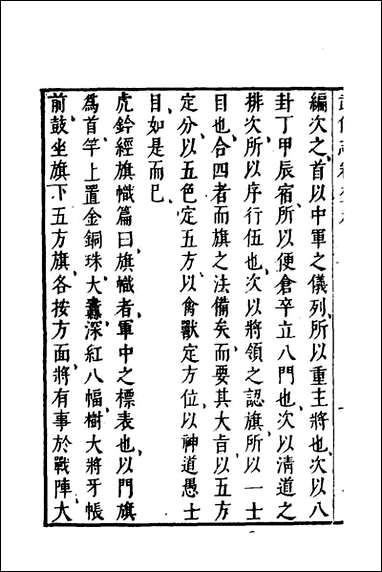 編次之首以中軍之儀列所以重主將也次以八
卦丁甲辰宿所以便倉卒立八門也次以清道之
排次所以序行伍也次以將領之認旗所以一士
目也合四者而旗之法備矣而要其大旨以五方
定分以五色定五方以禽獸定方位以神道愚士
目如是而已
虎鈐經旗幟篇曰旗幟者軍中之標表也以門旗
為首竿上置金銅珠大纛深紅八幅樹大將牙帳
前鼓坐旗下五方旗各按方面將有事於戰陣大